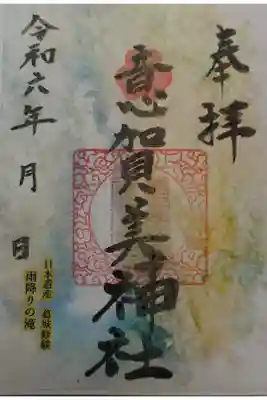 奉拝
意加賀美神社
令和六年 月 日
日本遺産 葛城修験
雨降りの滝